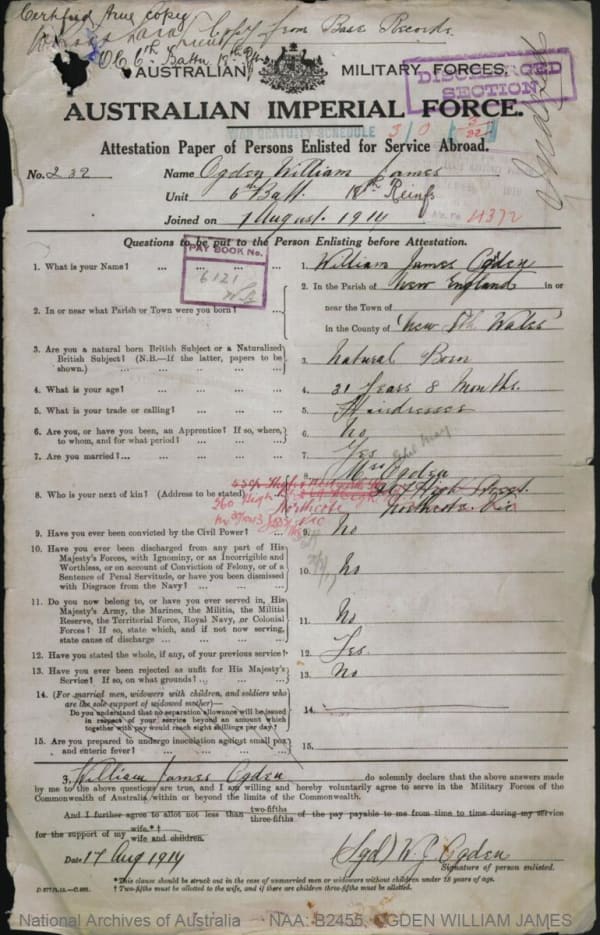 Certified true Copy
Copy from Base Records
O.C. 6th Battn
AUSTRALIAN MILITARY FORCES.
DISCHARGED
SECTION
AUSTRALIAN IMPERIAL FORCE.
WAR GRATUITY SCHEDULE 310
Attestation Paper of Persons Enlisted for Service Abroad.
No. 232 Name Ogden William James
Unit 6th Batt. 18th Reinfs
Joined on 1 August. 1914
Questions to be put to the Person Enlisting before Attestation.
PAY BOOK No.
6121
1. What is your Name? ... ... ... ... 1. William James Ogden
2. In or near what Parish or Town were you born? ... 2. In the Parish of New England in or
near the Town of
in the County of New Sth Wales
3. Are you a natural born British Subject or a Naturalized
British Subject? (N.B.—If the latter, papers to be
shown.) ... ... ... ... 3. Natural Born
4. What is your age? ... ... ... ... 4. 31 Years 8 Months.
5. What is your trade or calling? ... ... ... 5.
6. Are you, or have you been, an Apprentice? If so, where,
to whom, and for what period? ... ... ... 6. No
7. Are you married? ... ... ... ... 7. Yes
Mrs Ogden
8. Who is your next of kin? (Address to be stated) 8. High Street.
260 High St
Northcote Northcote Vic
9. Have you ever been convicted by the Civil Power? ... 9. No
10. Have you ever been discharged from any part of His
Majesty's Forces, with Ignominy, or as Incorrigible and
Worthless, or on account of Conviction of Felony, or of a
Sentence of Penal Servitude, or have you been dismissed
with Disgrace from the Navy? ... ... ... 10. No
11. Do you now belong to, or have you ever served in, His
Majesty's Army, the Marines, the Militia, the Militia
Reserve, the Territorial Force, Royal Navy, or Colonial
Forces? If so, state which, and if not now serving,
state cause of discharge ... ... ... 11. No
12. Have you stated the whole, if any, of your previous service? 12. Yes
13. Have you ever been rejected as unfit for His Majesty's
Service? If so, on what grounds? ... ... 13. No
14. (For married men, widowers with children, and soldiers who
are the sole support of widowed mother)—
Do you understand that no separation allowance will be issued
in respect of your service beyond an amount which
together with pay would reach eight shillings per day? 14.
15. Are you prepared to undergo inoculation against small pox
and enteric fever? ... ... ... ... 15.
3. William James Ogden do solemnly declare that the above answers made
by me to the above questions are true, and I am willing and hereby voluntarily agree to serve in the Military Forces of the
Commonwealth of Australia within or beyond the limits of the Commonwealth.
And I further agree to allot not less than two-fifths three-fifths of the pay payable to me from time to time during my service
for the support of my wife.*†
wife and children.
Date 17 Aug 1914 (Sgd) W. J. Ogden
Signature of person enlisted.
*This clause should be struck out in the case of unmarried men or widowers without children under 18 years of age.
† Two-fifths must be allotted to the wife, and if there are children three-fifths must be allotted.
National Archives of Australia NAA: B2455, OGDEN WILLIAM JAMES